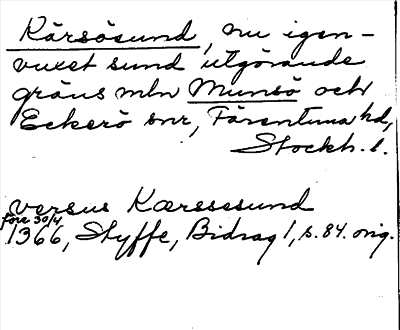 Kärsösund, nu igen-
vuxet sund utgörande
gräns mln Munsö och
Eckerö snr, Färentuna hd,
Stockh. l.
versus Kærssesund
före 30/4
1366, Styffe, Bidrag 1, s. 84. orig.